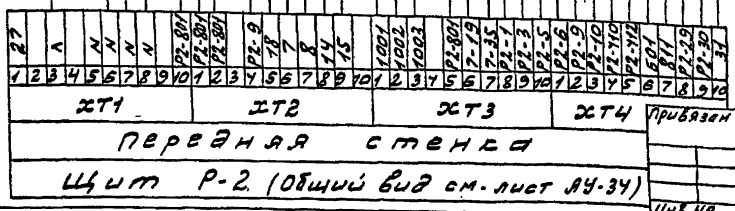 27 А N N N N Р2-801 Р2-801 Р2-801 Р2-9 18 7 8 14 15 1001 1002 1003 Р2-801 7-19 7-35 Р2-1 Р2-3 Р2-5 Р2-6 Р2-9 Р2-10 Р2-410 Р2-412 601 811 Р2-29 Р2-30 31
1 2 3 4 5 6 7 8 9 10 1 2 3 4 5 6 7 8 9 10 1 2 3 4 5 6 7 8 9 10 1 2 3 4 5 6 7 8 9 10
ХТ1 ХТ2 ХТ3 ХТ4 Привязан
Передняя стенка
Щит Р-2. (Общий вид см. лист АУ-34)